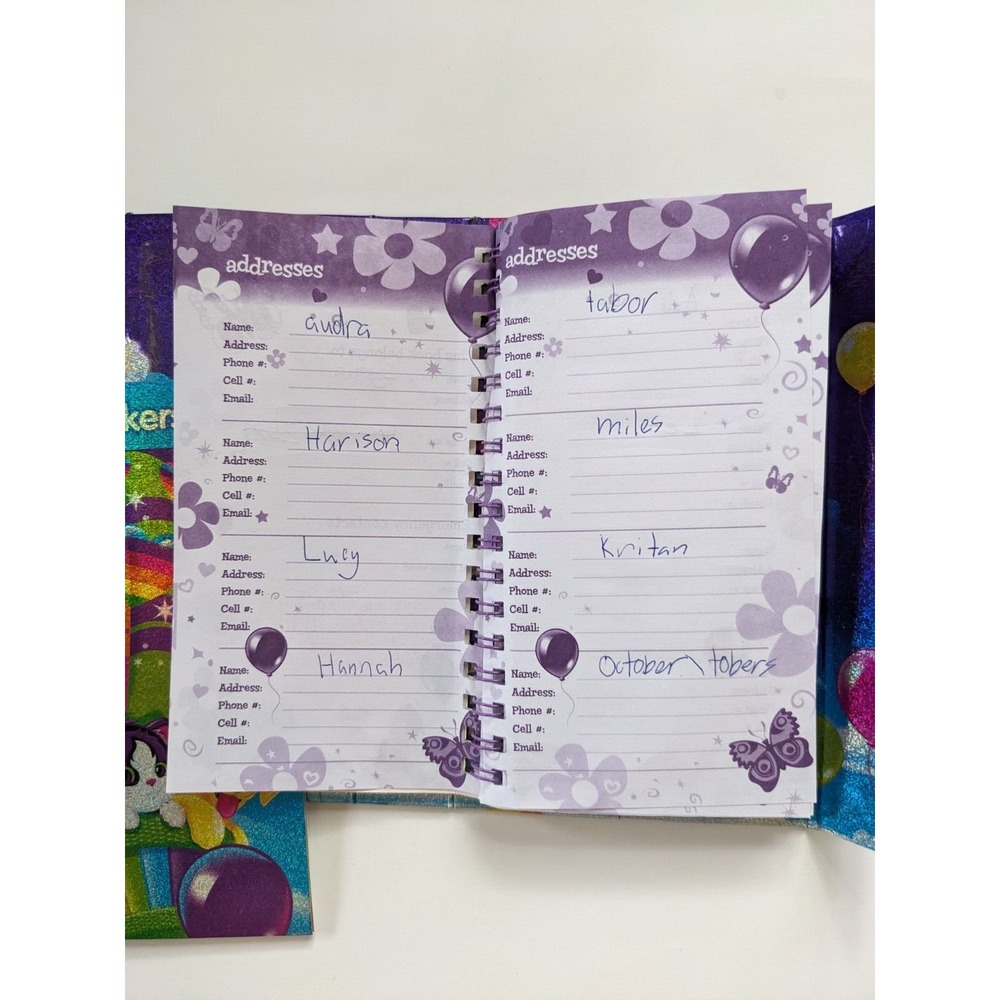 kers
addresses
Name: audra
Address:
Phone #:
Cell #:
Email:
Name: Harison
Address:
Phone #:
Cell #:
Email:
Name: Lucy
Address:
Phone #:
Cell #:
Email:
Name: Hannah
Address:
Phone #:
Cell #:
Email:
addresses
Name: tabor
Address:
Phone #:
Cell #:
Email:
Name: miles
Address:
Phone #:
Cell #:
Email:
Name: Kritan
Address:
Phone #:
Cell #:
Email:
Name: October\tobers
Address:
Phone #:
Cell #:
Email: